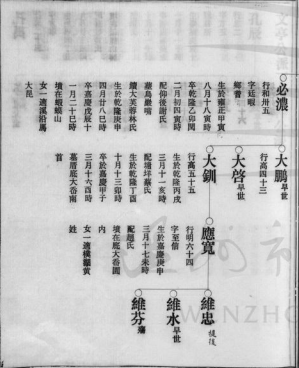 必濃
行和卅五
字廷瑕
鄉耆
生於雍正甲寅
八月十八寅時
卒乾隆乙卯閏
二月初四寅時
配仰後謝氏
藥烏巖嘴
續大芙蓉林氏
生於乾隆庚申
四月廿八巳時
卒嘉慶戊辰十
一月二十巳時
墳在蝦蟆山
女一適溪沿馬
大昆
大鵬 早世
行高四十三
大啓 早世
大釧
行高五十五
生於乾隆丙戌
三月十一亥時
配塘垟蔡氏
生於乾隆丁酉
十月十三卯時
卒於嘉慶甲子
三月十六酉時
墓厝底大岙南
首
應寬
行明六十四
字至信
生於嘉慶庚申
三月十七未時
配趙氏
墳在底大岙園
內
女一適橫
黃
姓
維忠
維水 早世
維芬
WENZHO